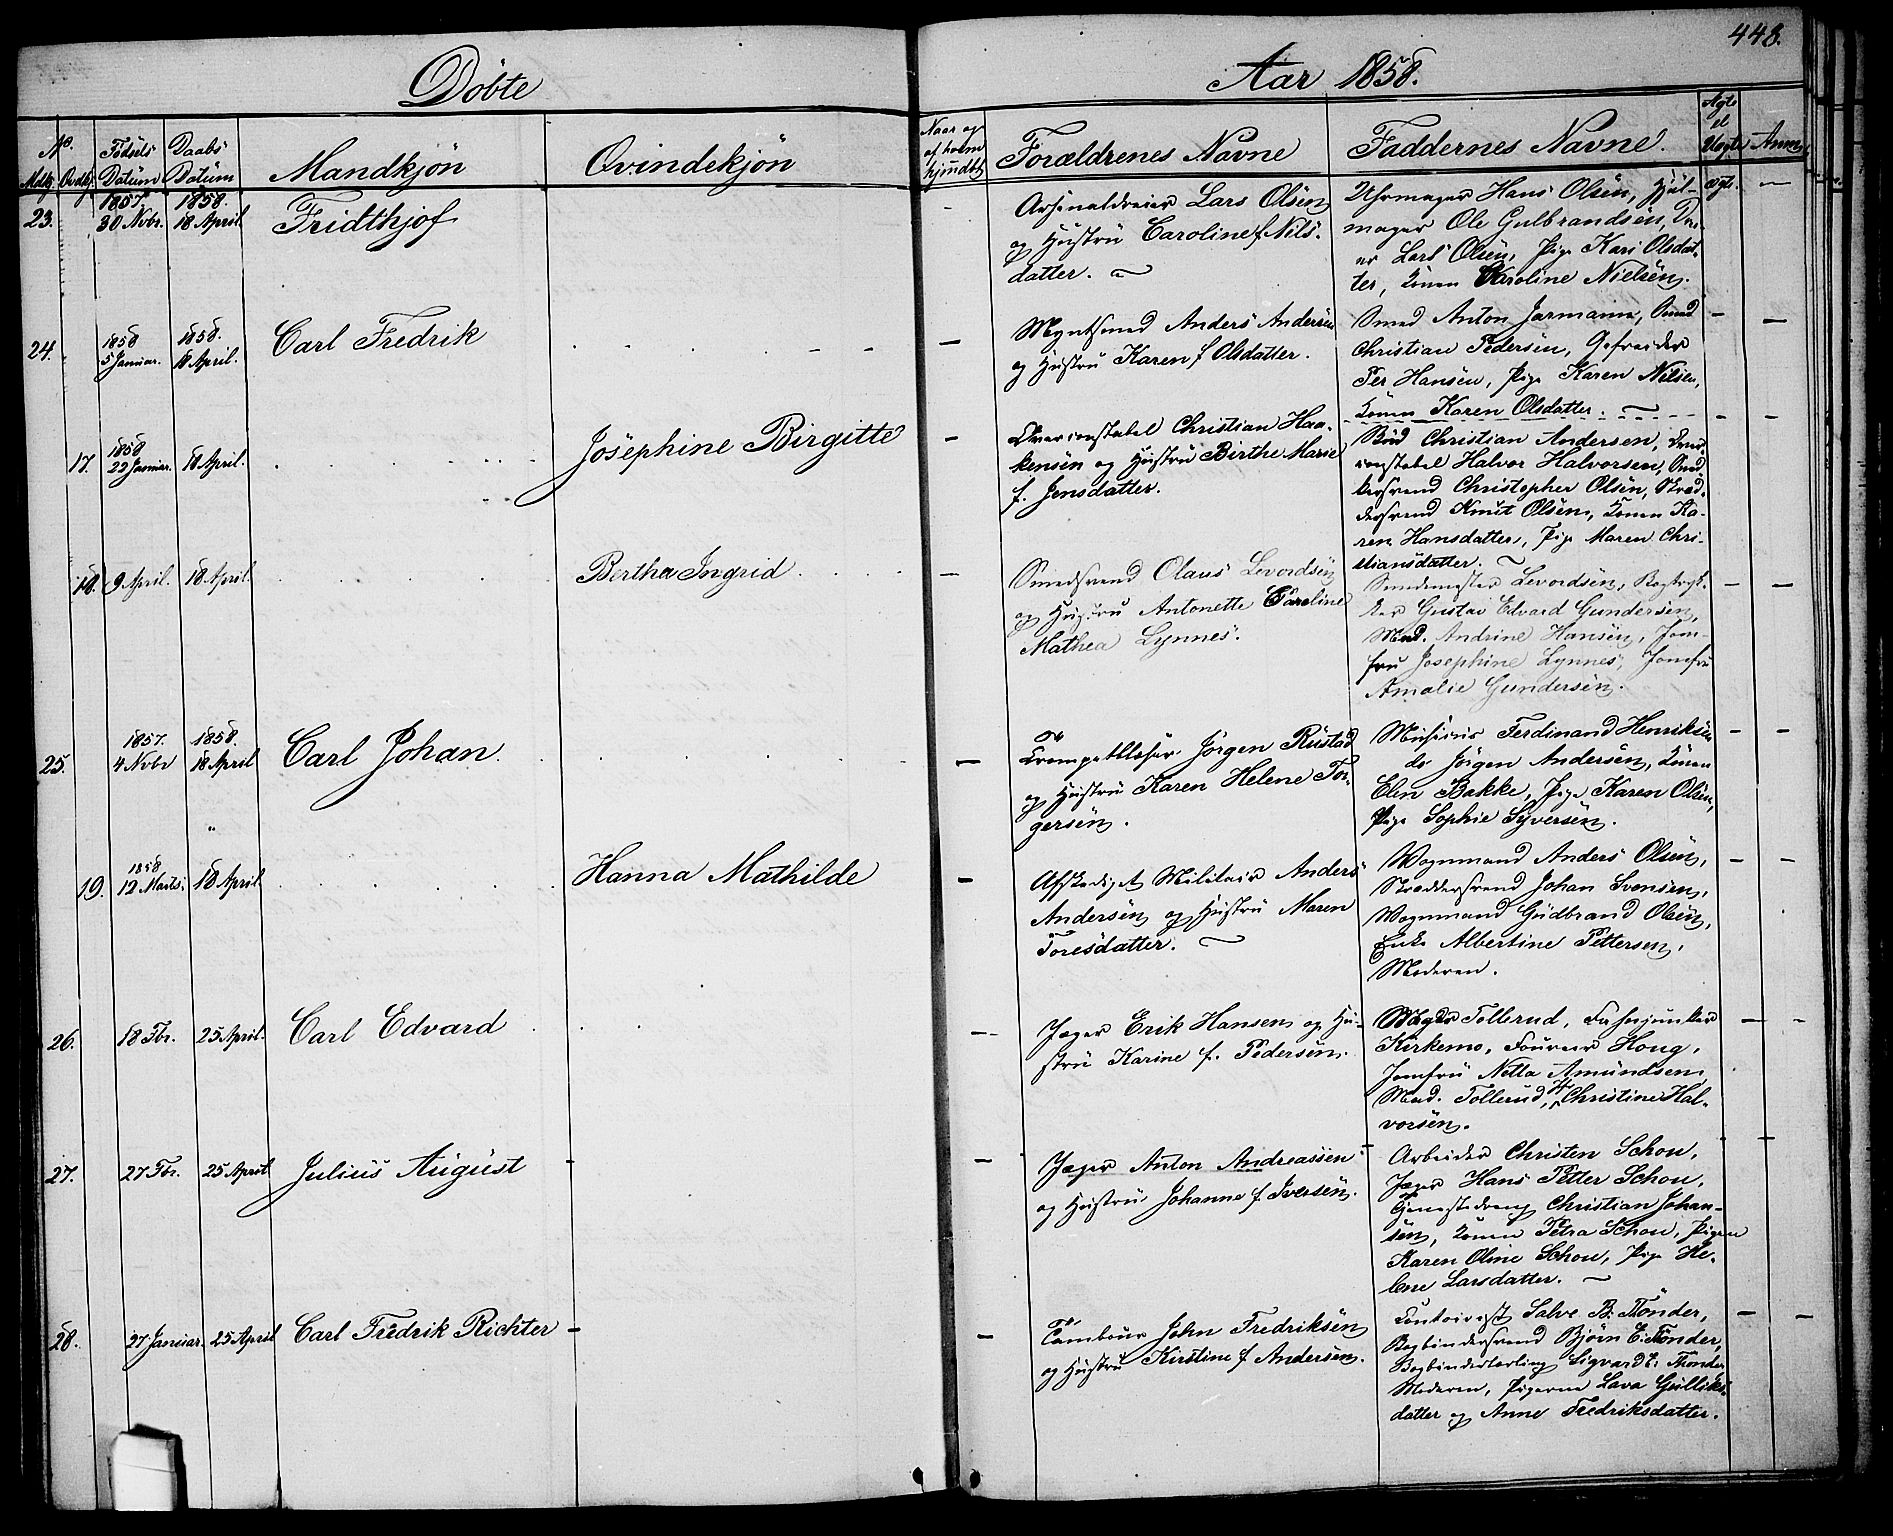 448.
Döbte
Aar 1858.
No.
Mdkj. Qvdkj.
Födsels Datum
Daabs Datum
Mandkjön
Qvindekjön
Naar og af hvem hjemdöbt
Forældrenes Navne
Faddernes Navne.
Ægte el Uægte
Anm.
23.
1857. 30 Novbr.
1858. 18 April
Fridthjof
Arsenaldreier Lars Olsen
og Hustru Caroline f. Nils-
datter.
Uhrmager Hans Olsen, Hjul-
mager Ole Gulbrandsen, Drei-
er Lars Olsen, Pige Kari Olsdat-
ter, Konen Karoline Nielsen.
ægte.
24.
1858 5 Januar.
1858. 18 April.
Carl Fredrik
Myntsmed Anders Andersen
og Hustru Karen f Olsdatter.
Smed Anton Jarmann, Smed
Christian Pedersen, Gefreider
Per Hansen, Pige Karen Nilsen,
Konen Karen Olsdatter.
17.
1858 22 Januar.
18 April.
Josephine Birgitte
Overconstabel Christian Haa-
kensen og Hustru Birthe Marie
f. Jensdatter.
Bud Christian Andersen, Over-
constabel Halvor Halvorsen, Smed
kersvend Christopher Olsen, Skræd-
dersvend Knut Olsen, Konen Ka-
ren Hansdatter, Pige Maren Chri-
stiansdatter.
18.
9 April.
18 April.
Bertha Ingrid.
Smedsvend Olaus Levordsen
og Hustru Antonette Caroline
Mathea Lynnes.
Smedemester Levordsen, Bogtryk-
ker Gustav Edvard Gundersen,
Mad. Andrine Hansen, Jom-
fru Josephine Lynnes, Jomfru
Amalie Gundersen.
25.
1857. 4 Novbr
1858. 18 April
Carl Johan.
Trompetblæser Jörgen Rustad
og Hustru Karen Helene Tor-
gersen.
Musicus Ferdinand Henriksen
do Jörgen Andersen, Konen
Elen Bakke, Pige Karen Olsen,
Pige Sophie Syversen.
19.
1858 12 Marts.
18 April
Hanna Mathilde
Afskediget Militair Anders
Andersen og Hustru Maren
Toresdatter.
Vognmand Anders Olsen,
Skræddersvend Johan Svensen,
Vognmand Gudbrand Olsen,
Enke Albertine Pettersen,
Moderen.
26.
18 Fbr.
25 April.
Carl Edvard
Jæger Erik Hansen og Hu-
stru Karine f. Pedersen.
Tollerud,
Kirkemo, Fourer Houg,
Jomfru Netta Amundsen,
Mad. Tollerud, Christine Hal-
vorsen.
27.
27 Fbr.
25 April
Julius August
Jæger Anton Andreassen
og Hustru Johanne f. Iversen.
Arbeider Christen Schou,
Jæger Hans Petter Schou,
Tjenestedreng Christian Johan-
sen, Konen Petra Schou, Pigen
Karen Oline Schou, Pige He-
lene Larsdatter.
28.
27 Januar.
25 April
Carl Fredrik Richter
Tambour John Fredriksen
og Hustru Kirstine f Andersen.
Contorist Salve B. Tönder,
Bogbindersvend Björn E. Tönder,
Bogbinderlærling Sigvard E. Tönder
Moderen, Pigerne Lava Gulliks-
datter og Anne Fredriksdatter.